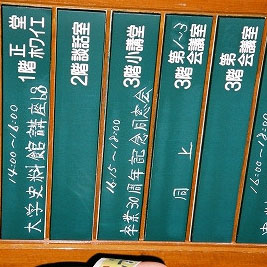 正堂
1階ホワイエ
14:00~16:00
大学史料館講座
2階談話室
3階小講堂
16:15~18:00
卒業30周年記念同窓会
第1~3
3階会議室
同上
第
3階会議室
16:00~18